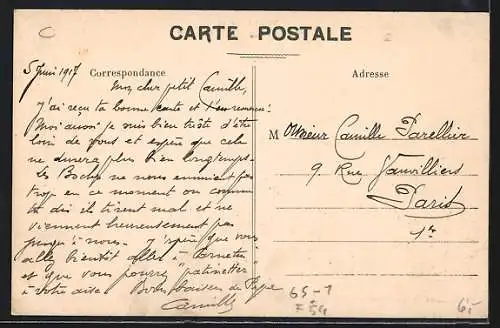 C
CARTE POSTALE
5 Juin 1917
Correspondance
Adresse
Mon cher petit Camille,
J'ai reçu ta bonne carte et t'en remercie.
Moi aussi je suis bien triste d'être
loin de vous et espère que cela
ne durera plus bien longtemps.
Les Boches ne nous ennuient pas
trop en ce moment ou comme
tu dis ils tirent mal et ne
viennent heureusement pas
jusqu'à nous. J'espère que vous
allez bientôt aller à
et que vous pourrez patinetter
à votre aise. Bons baisers de
Camille
Monsieur Camille Parellier
9 Rue Vauvilliers
Paris
1er
65-1
F 54
6f-